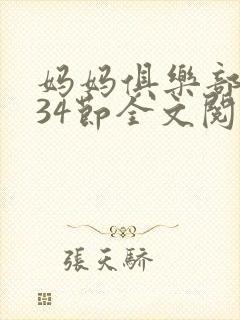 妈妈俱樂部
34節全文閱
張天驕